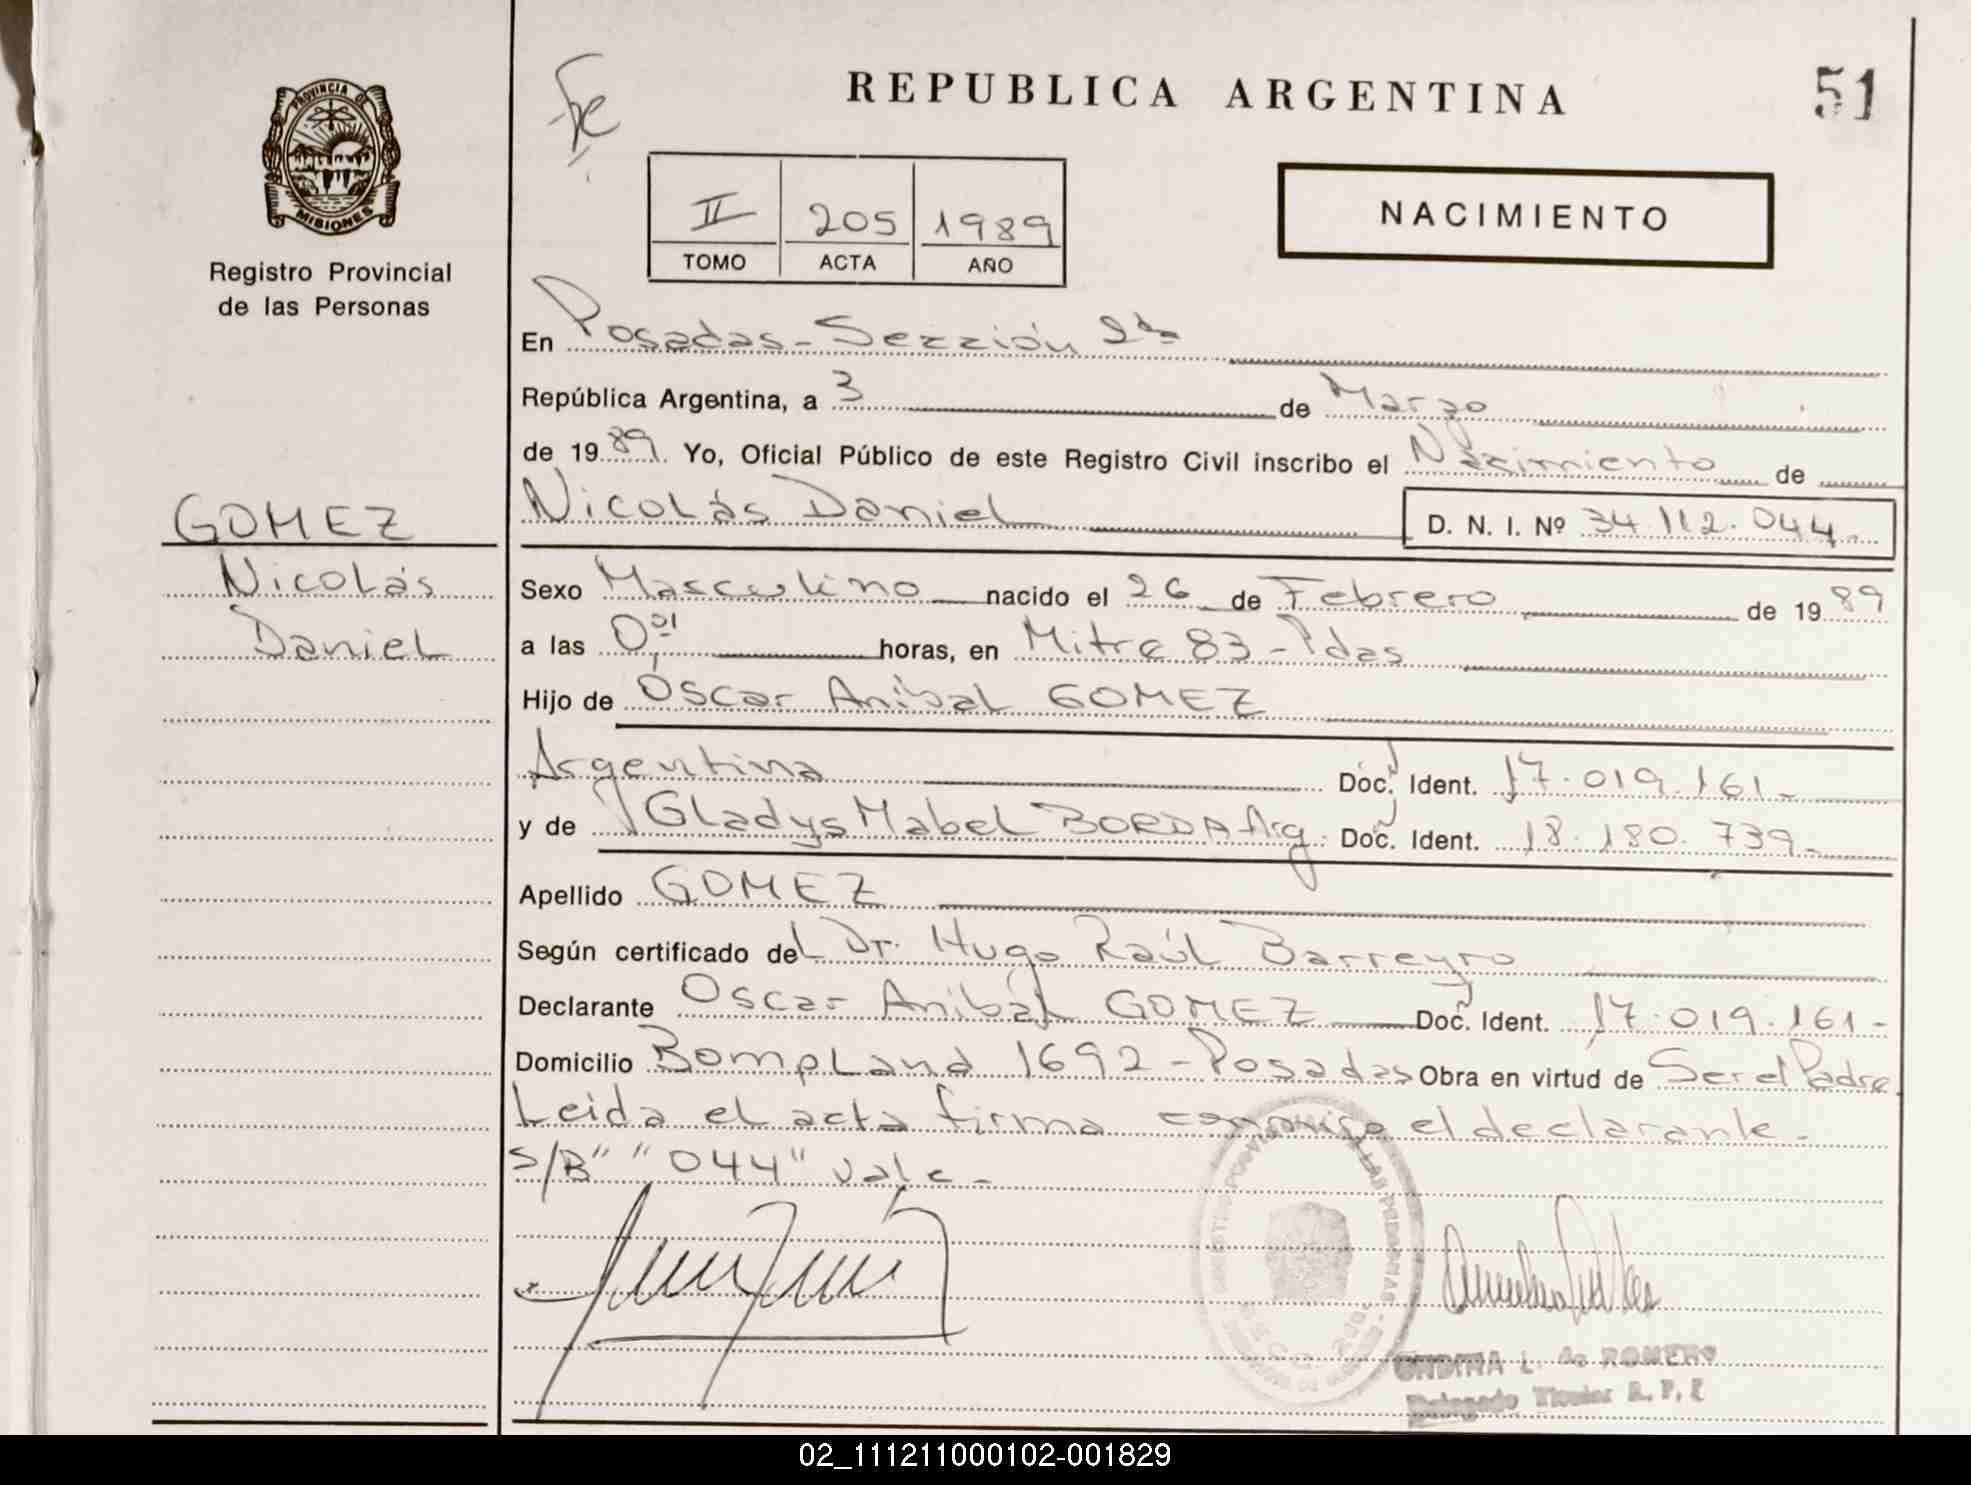 PROVINCIA DE
MISIONES
Registro Provincial
de las Personas
GOMEZ
Nicolás
Daniel
REPUBLICA ARGENTINA
51
II 205 1989
TOMO ACTA AÑO
NACIMIENTO
En Posadas - Sección 2da
República Argentina, a 3 de Marzo
de 1989. Yo, Oficial Público de este Registro Civil inscribo el Nacimiento de
Nicolás Daniel D. N. I. Nº 34.112.044.-
Sexo Masculino nacido el 26 de Febrero de 1989
a las 0,01 horas, en Mitre 83 - Pdas
Hijo de Oscar Anibal GOMEZ
Argentina Doc. Ident. 17.019.161-
y de Gladys Mabel BORDA Arg. Doc. Ident. 18.180.739-
Apellido GOMEZ
Según certificado del Dr. Hugo Raúl Barreyro
Declarante Oscar Anibal GOMEZ Doc. Ident. 17.019.161-
Domicilio Bompland 1692 - Posadas Obra en virtud de Ser el Padre
Leida el acta firma conmigo el declarante.
S/B" "044" vale -
ONDINA L. de ROMERO
Delegado Titular R. P. P.
02_111211000102-001829